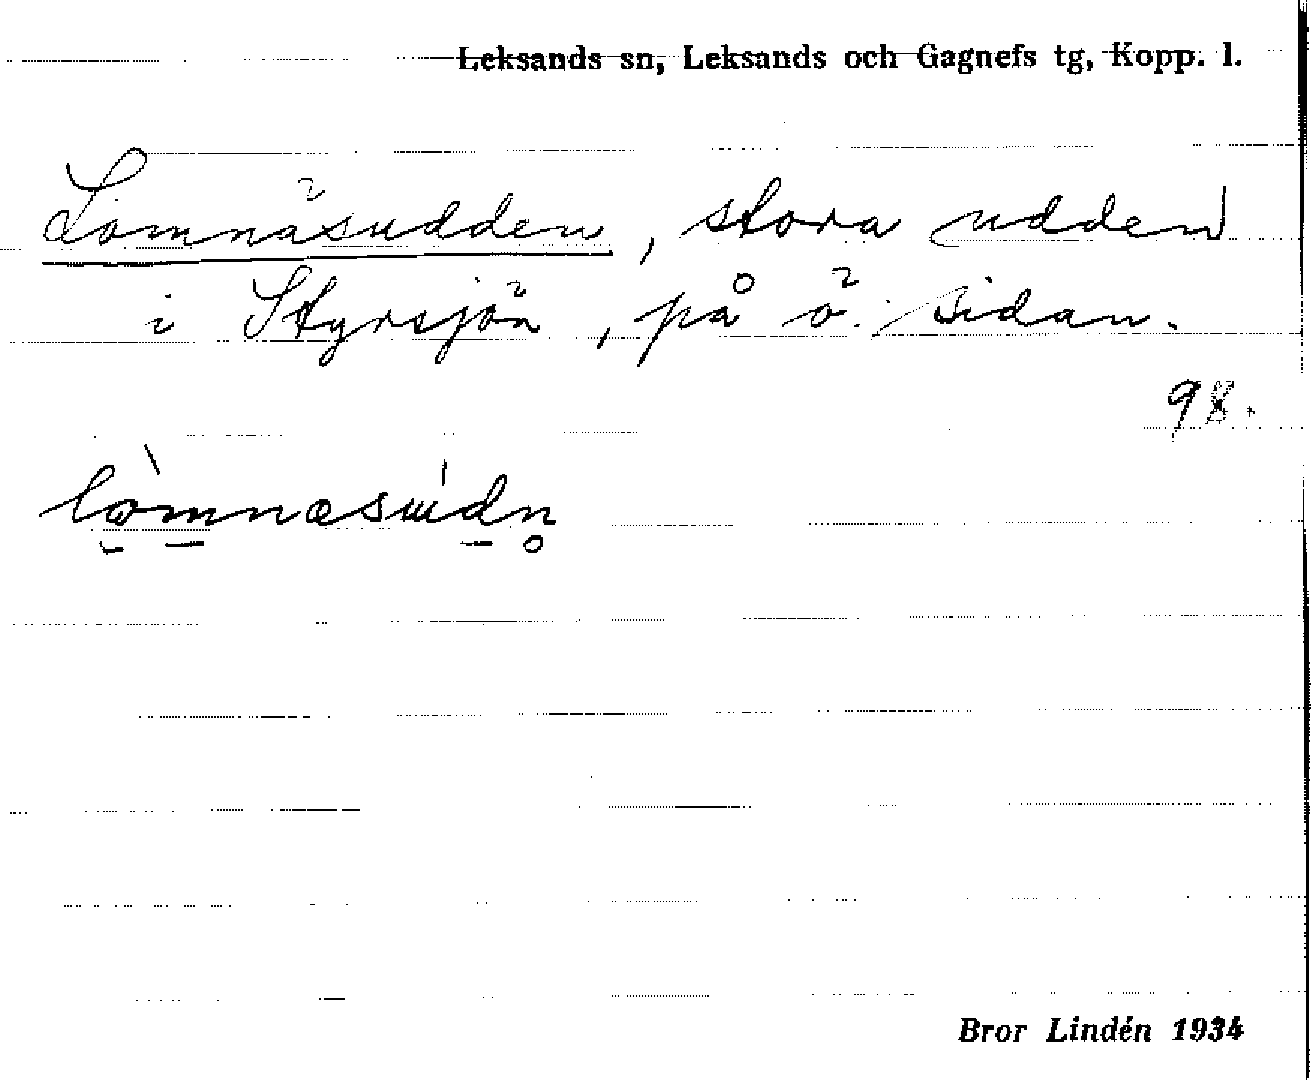 Leksands sn, Leksands och Gagnefs tg, Kopp. l.
Lomnäsudden, stora udden
i Styrsjön, på ö. sidan.
98.
lòmnæsuidn
Bror Lindén 1934